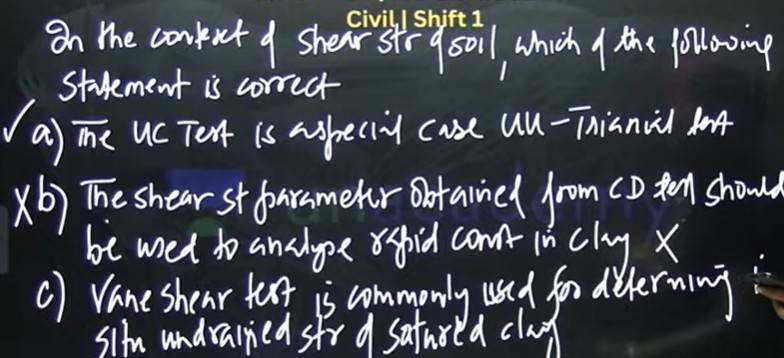 Civil | Shift 1
In the context of shear str of soil, which of the following
Statement is correct
✓ a) The UC Test is a special case UU-Triaxial test
X b) The shear st parameter obtained from CD test should
be used to analyse rapid const in clay X
c) Vane shear test is commonly used for determining i
situ undrained str of satured clay